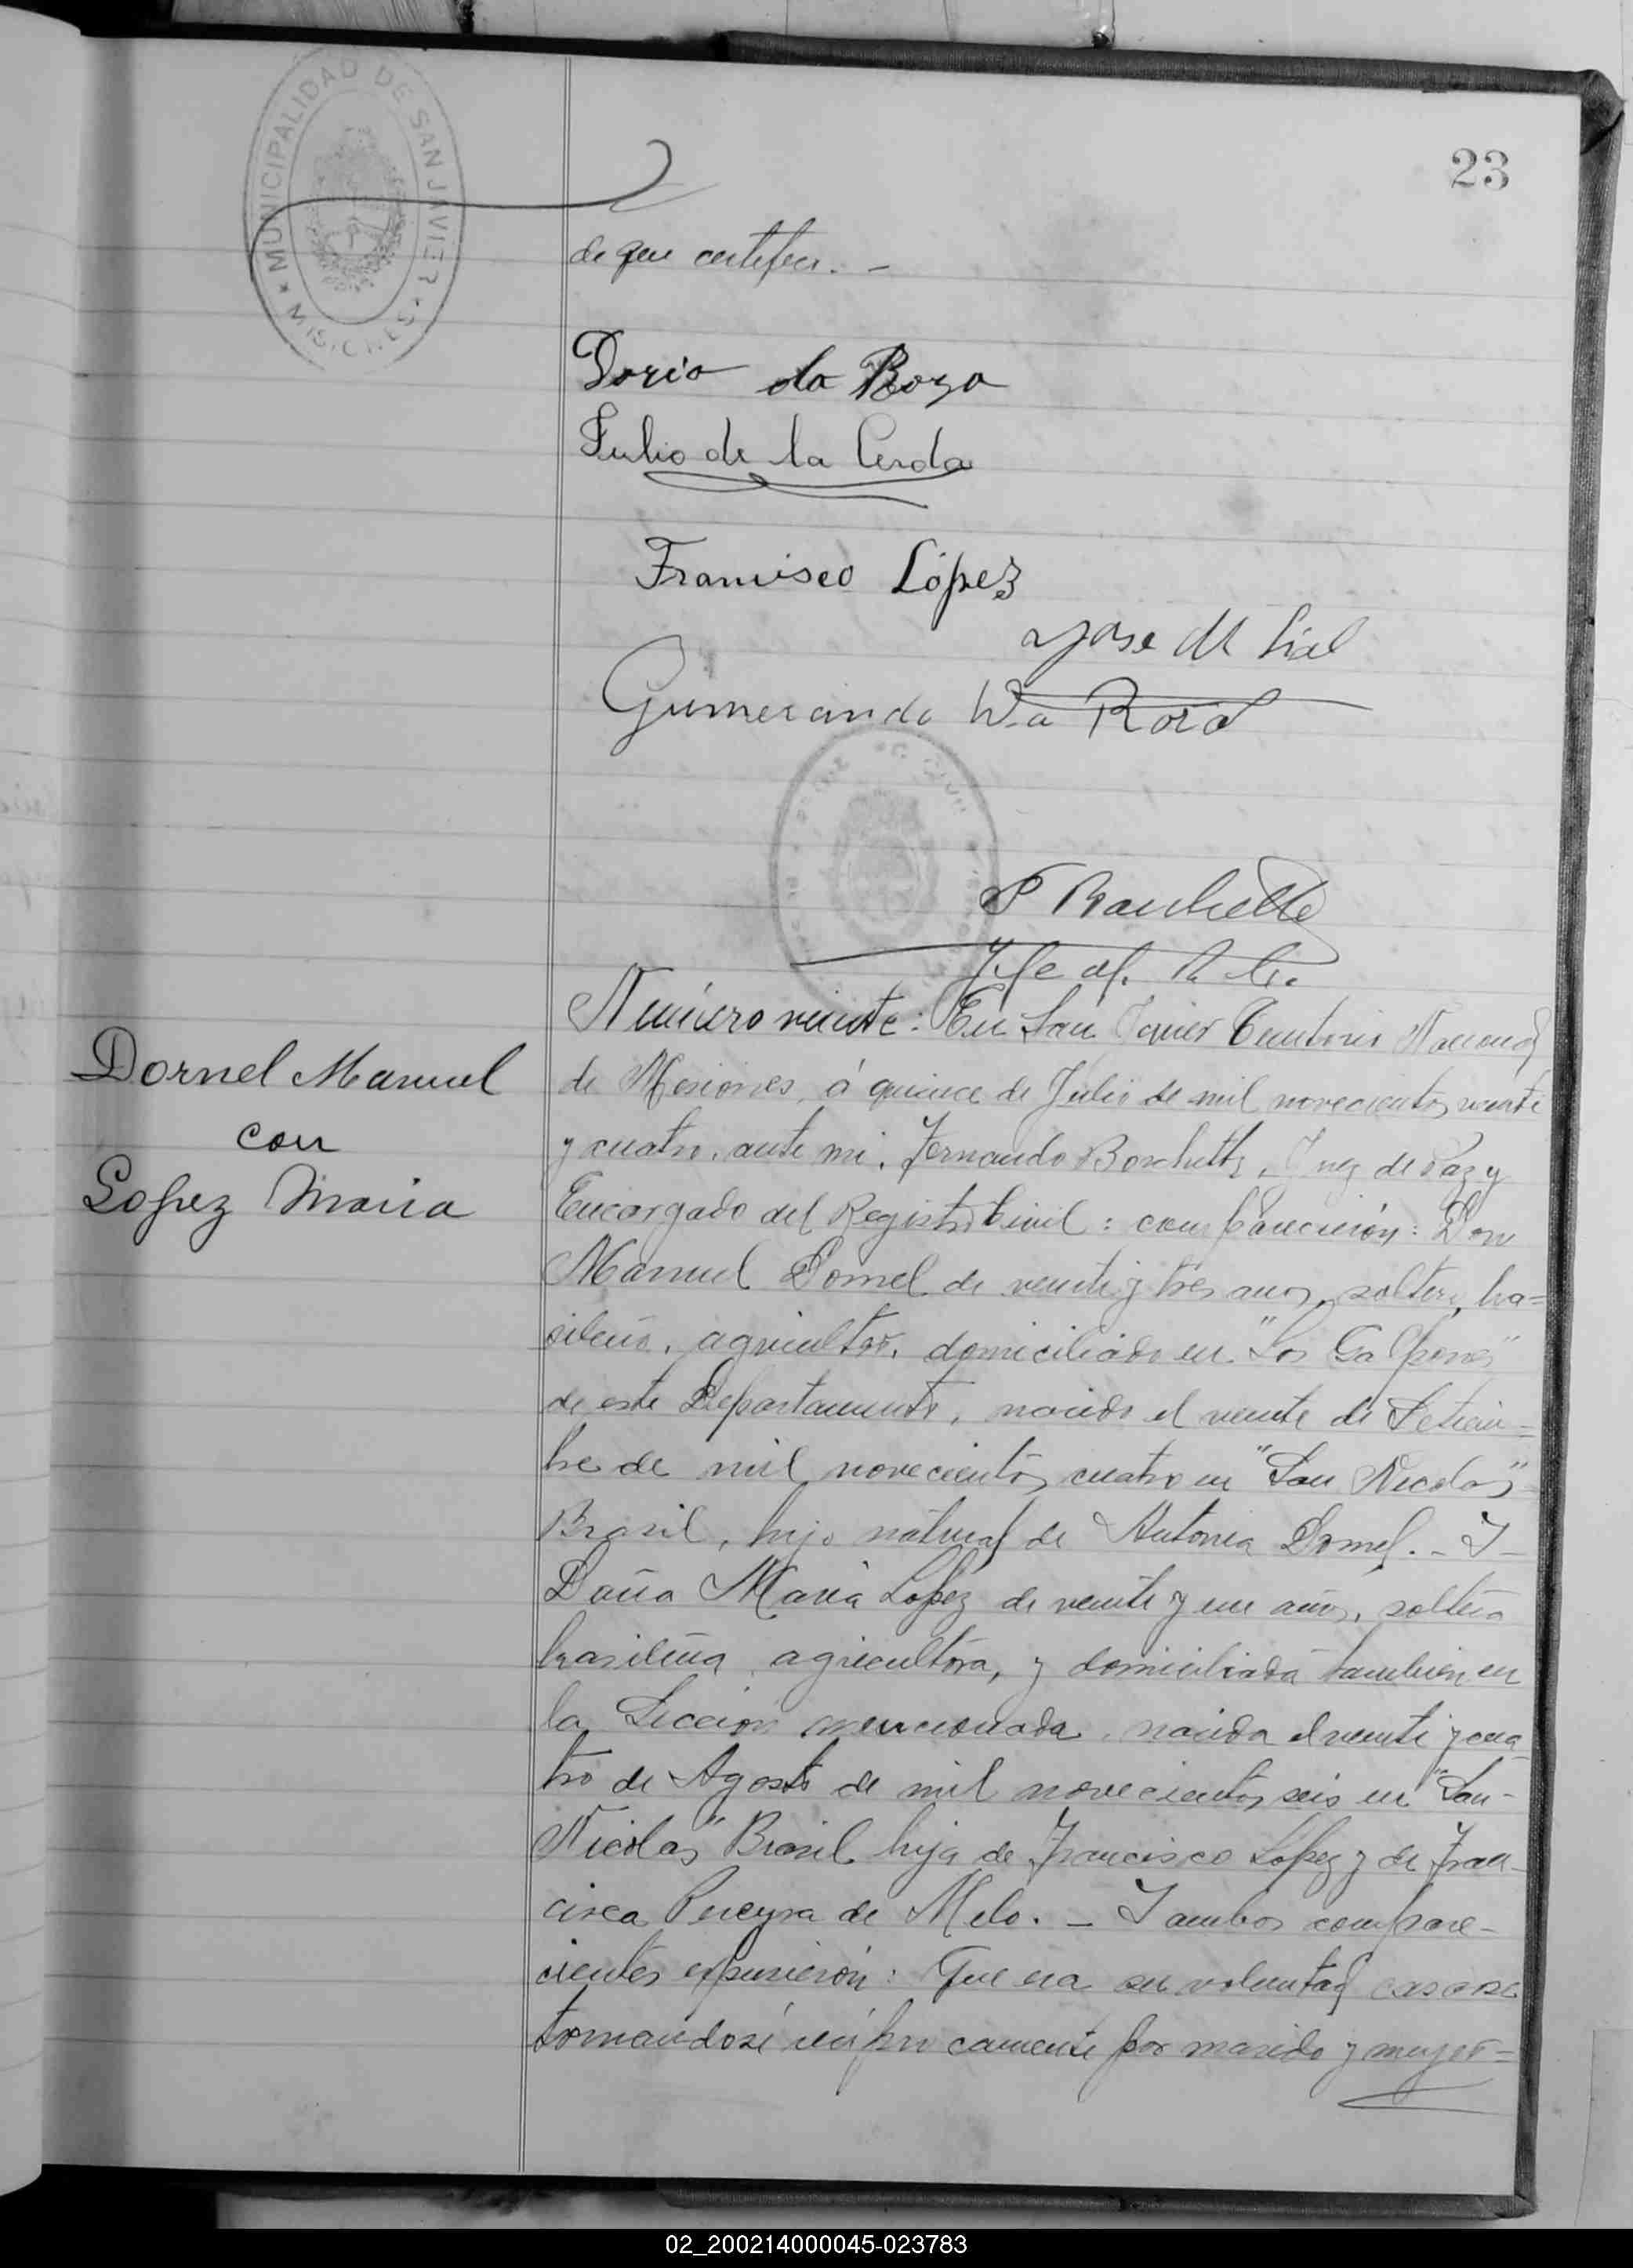 MUNICIPALIDAD DE SAN JAVIER
★ MISIONES ★
23
de que certifico. -
Dorio da Roza
Julio de la Cerda
Francisco López
Jose M Lial
Gumercindo Da Roza
Jefe of. R. C.
Dornel Manuel
con
Lopez Maria
Número veinte: En San Javier Territorio Nacional
de Misiones, á quince de Julio de mil novecientos veinte
y cuatro, ante mi, Fernando Borchetti, Juez de Paz y
Encargado del Registro Civil: comparecierón: Don
Manuel Dornel de veinte y tres anos, soltero, bra=
sileño, agricultor, domiciliado en "Los Galpones"
de este Departamento, nacido el veinte de Setiem=
bre de mil novecientos cuatro en "San Nicolas"
Brasil, hijo natural de Antonia Dornel. - Y
Doña María López de veinte y un años, soltera
brasileña, agricultora, y domiciliada tambien en
la Sección mencionada, nacida el veinte y cua-
tro de Agosto de mil novecientos seis en "San-
Nicolas" Brasil hija de Francisco López y de Fran-
cisca Pereyra de Melo. - Y ambos compare-
cientes expusierón: Que era su voluntad casarse
tomandosé recíprocamente por marido y mujer=
02_200214000045-023783